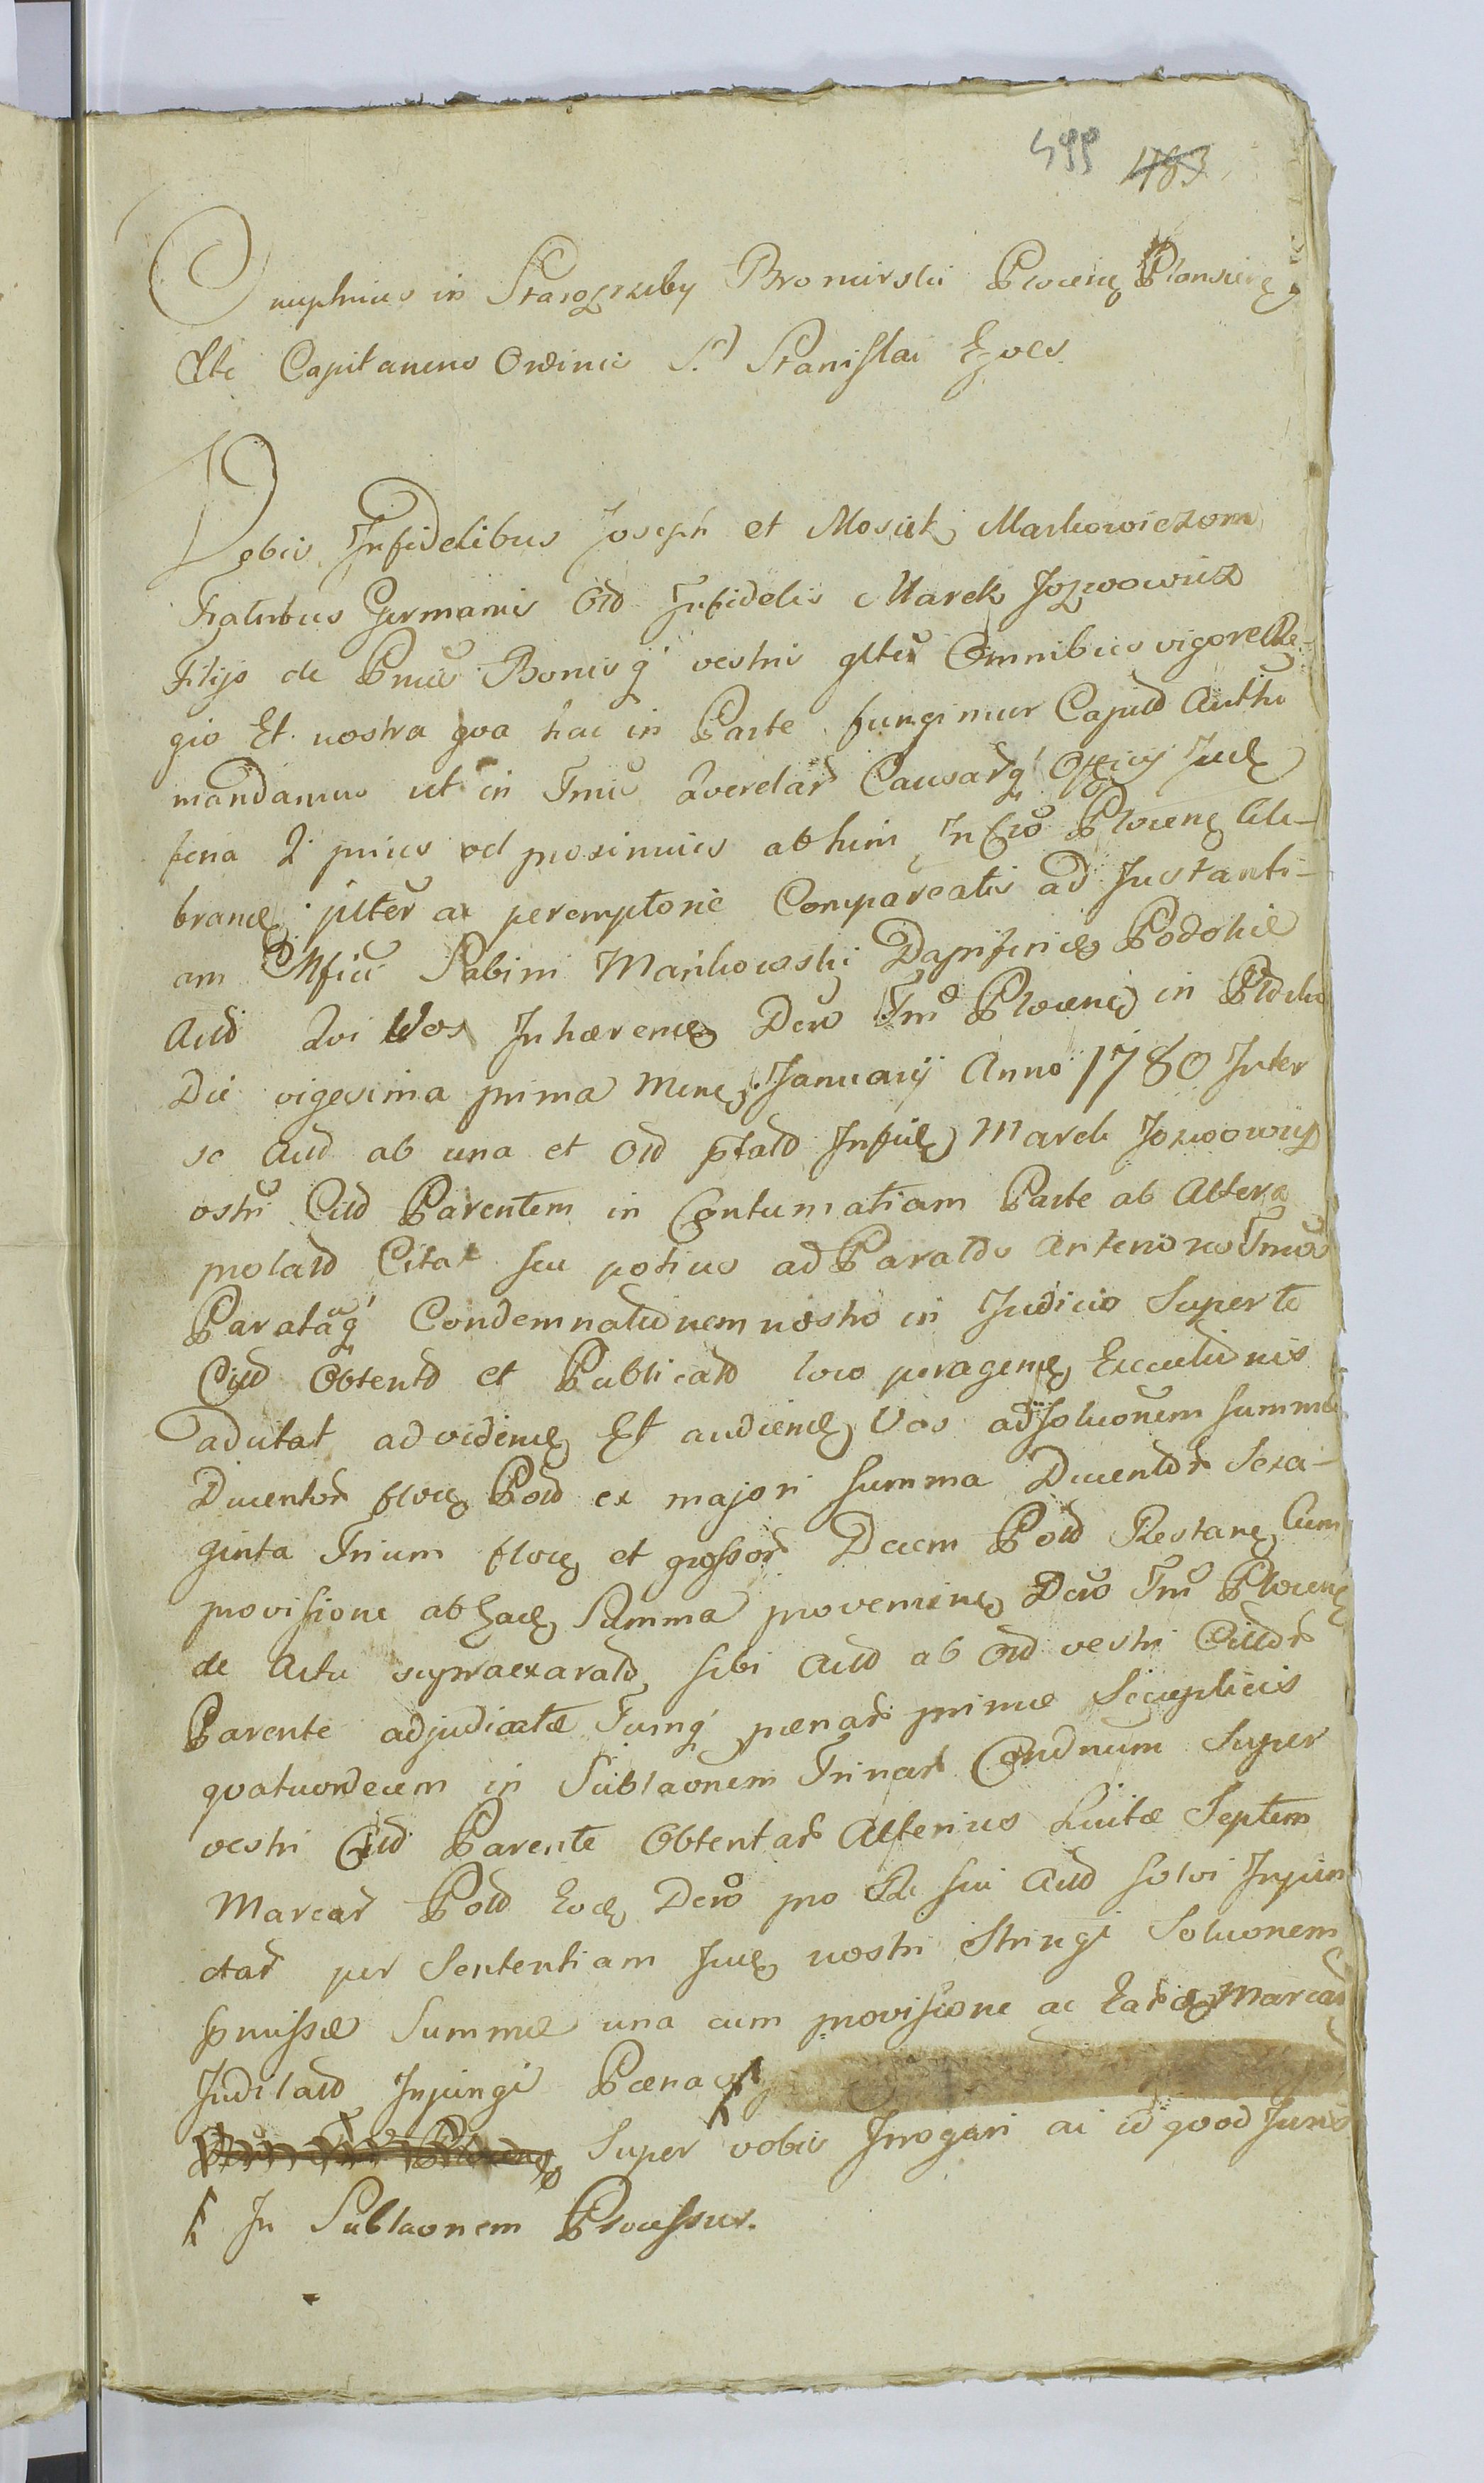 499 483
Onuphrius in Starogrzeby Bromirski Plocenẹ Plonscenẹ
Etc Capitaneus Ordinis S. Stanislai Eques
Vobis Infidelibus Joseph et Mosiek Markowiczom
Fratribus Germanis Old Infidelis Marek Jozwowicz
Filijs de Pmis Bonisq vestris gltter Omnibus vigore Re-
gio Et nostra qva hac in Parte fungimur Capitld Autthe
mandamus ut in Tmis Qverelar Causarq Officij Jud
feria 2 prius vel proximius ab hinc In Cro Plocenẹ Cele-
brand jltter ac peremptorie Compareatis ad Instanti-
am Mfici Sabini Mańkowski Dapiferidẹ Podolie
Actd Qvi Vos Inhærendẹ Dcro Tm Plocenẹ in
Die vigesima prima Mens Januarij Anno 1780 Inter
se Actd ab una et Old pfatd Infidẹ Marek Jozwowicz
vstri Citd Parentem in Contumatiam Parte ab Altera
prolatd Citat seu potius ad Paratds Anteriores Tmos
Parataq Condemnatidnem nostro in Judicio Super te
Citd Obtentd et Publicatd loco peragendẹ Executidnis
adcitat ad videndẹ Et audiendẹ Vos ad Soluonem Summæ
Ducentor florẹ Pold ex majori Summa Ducentdr Sexa-
ginta Trium florẹ et grossor Decem Pold Restanẹ Cum
provisione ab hacẹ Summa provenienẹ Dcro Tm Plocenẹ
de Actu supraexaratd, sibi Actd ab Old vestri Citdr
Parente adjudicatæ Tumq pænar primæ Seceplicis
qvatuordecem in Sublaonem Trinar Condnum Super
vestri Citd Parente Obtentar Alterius Luitæ Septem
Marcar Pold Eodẹ Dcro pro Re sui Actd solvi Injun
ctar per Sententiam Judẹ nostri Stringi Soluonem
pmissæ Summæ una cum provisione ac Eardẹ Marcar
Juditatd Injungi Pænas
Super vobis Irrogari ac id qvod Juris
In Sublaonem Processus.